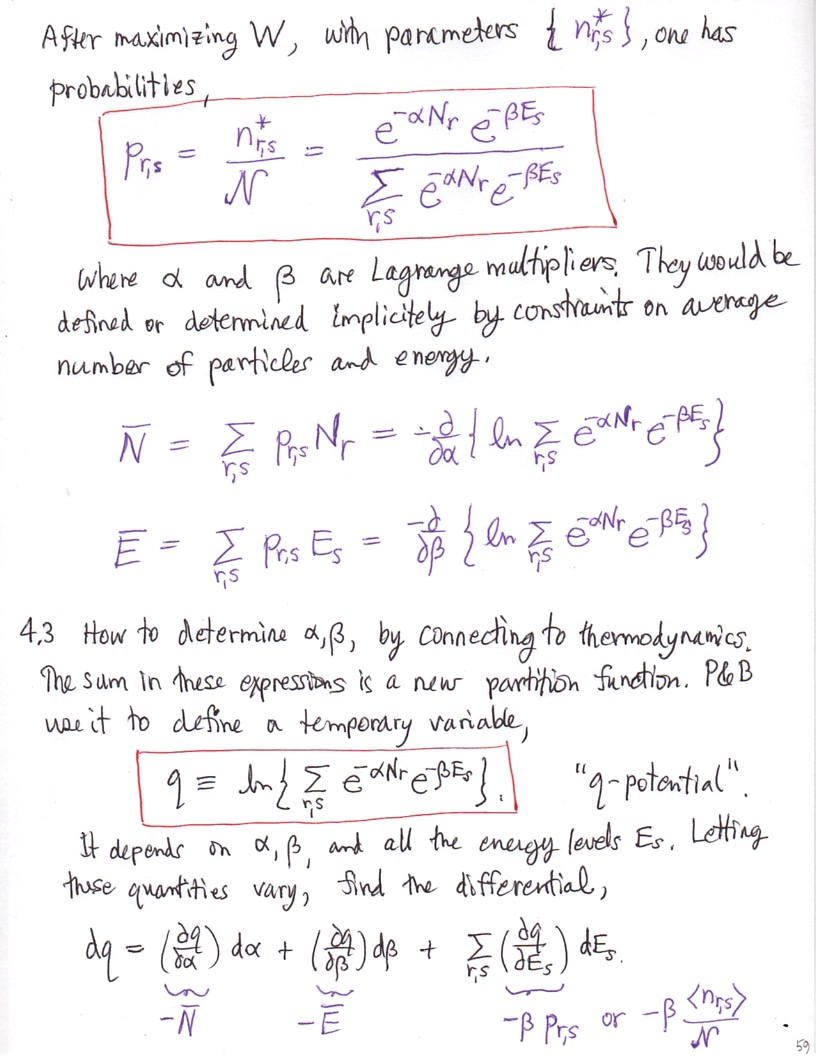 After maximizing W, with parameters { n*r,s }, one has
probabilities,
Pr,s = n*r,s / 𝒩 = e^-αNr e^-βEs / Σr,s e^-αNr e^-βEs
Where α and β are Lagrange multipliers. They would be
defined or determined implicitely by constraints on average
number of particles and energy.
N̄ = Σr,s Pr,s Nr = -∂/∂α { ln Σr,s e^-αNr e^-βEs }
Ē = Σr,s Pr,s Es = -∂/∂β { ln Σr,s e^-αNr e^-βEs }
4.3 How to determine α,β, by connecting to thermodynamics.
The sum in these expressions is a new partition function. P&B
use it to define a temporary variable,
q ≡ ln{ Σr,s e^-αNr e^-βEs }. "q-potential".
It depends on α, β, and all the energy levels Es. Letting
those quantities vary, find the differential,
dq = (∂q/∂α) dα + (∂q/∂β) dβ + Σr,s (∂q/∂Es) dEs.
-N̄ -Ē -β Pr,s or -β <nr,s>/𝒩
59